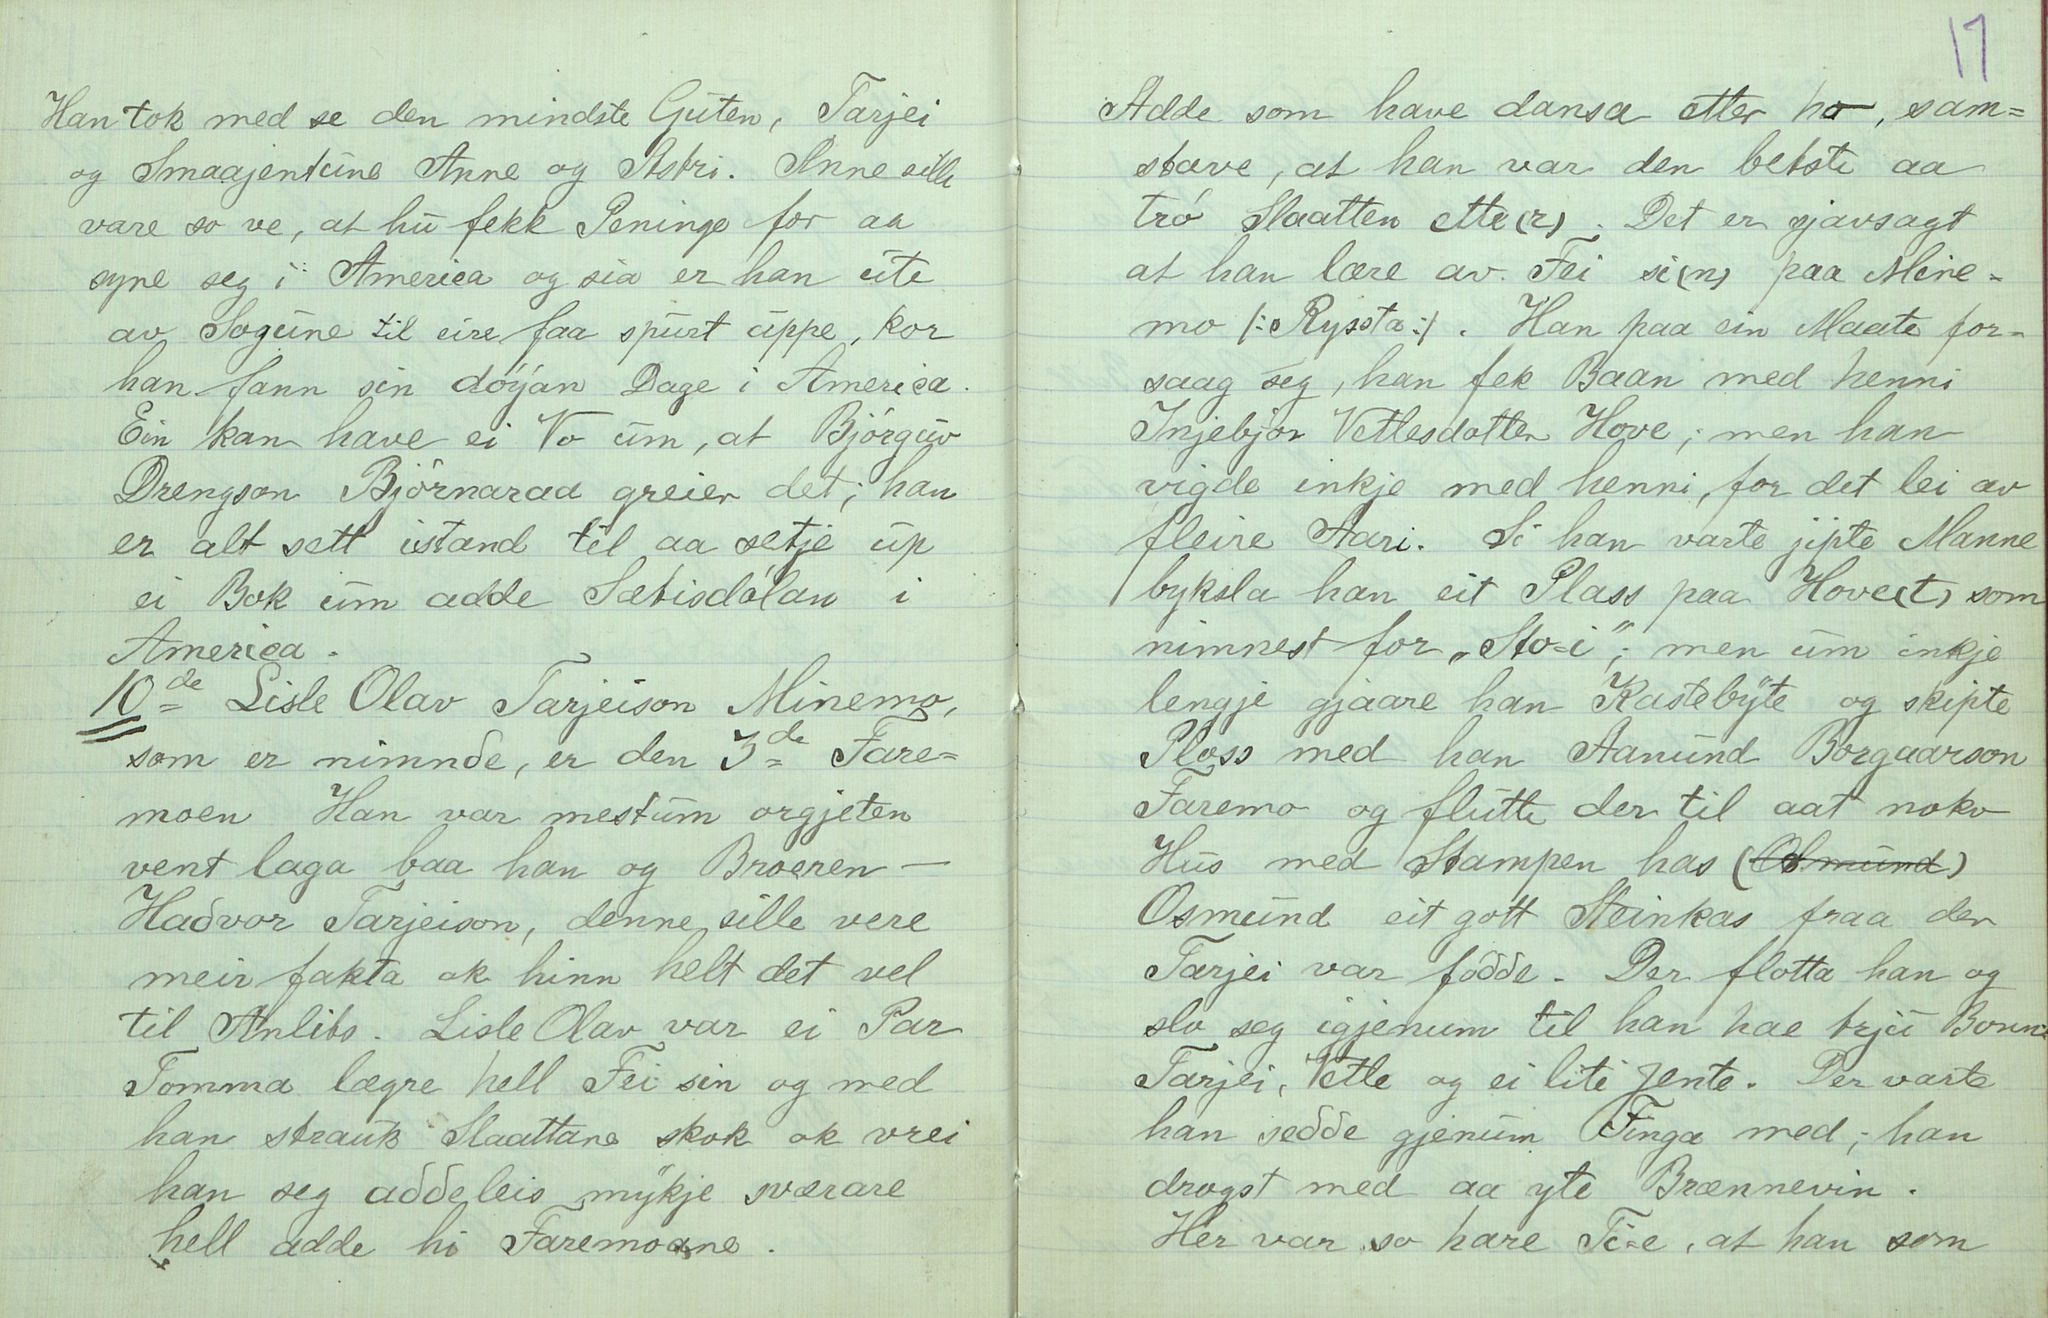 Han tok med se den mindste Guten, Tarjei
og Smaajentune Anne og Astri. Anne sille
vare so ve, at hu fekk Peninge for aa
syne seg i America og sia er han ute
av Sogune til eire faa spurt uppe, kor
han fann sin dóyan Dage i America.
Ein kan have ei Vo um, at Bjórguv
Drengson Bjórnaraa greier det; han
er alt sett istand til aa setje up
ei Bok um adde Sætisdólan i
America.
10de Lisle Olav Tarjeison Minemo,
som er nimnde, er den 3de Fare=
moen Han var mestum orgjeten
vent laga baa han og Broeren —
Haðvor Tarjeison, denne sille vere
meir fakta ok hinn helt det vel
til Anlits. Lisle Olav var ei Par
Tomma lægre hell Fei sin og med
han strauk Slaattane skok ok vrei
han seg aððeleis mykje sværare
hell adde hi Faremoane.
17
Adde som have dansa etter ho, sam=
stave, at han var den betste aa
tró Slaatten ette(r). Det er sjavsagt
at han lære av Fei si(n) paa Mine-
mo /: Ryssta :/. Han paa ein Maate for-
saag seg, han fek Baan med henni
Injebjór Vetlesdotter Hove; men han
vigde inkje med henni, for det lei av
fleire Aari. Si han varte jipte Manne
byksla han eit Plass paa Hove(t) som
nimnest for „Sto-i"; men um inkje
lengje gjaare han Kastebyte og skipte
Plass med han Aanund Borgaarson
Faremo og flutte der til aat nokv
Hus med Stampen has (Osmund)
Osmund eit gott Steinkas fraa der
Tarjei var fodde. Der flotta han og
slo seg igjenum til han hae trju Bonn
Tarjei, Vetle og ei liti Jente. Der varte
han seðde gjenum Finga med; han
drogst med aa yte Brænnevin.
Her var so hare Ti-e, at han som